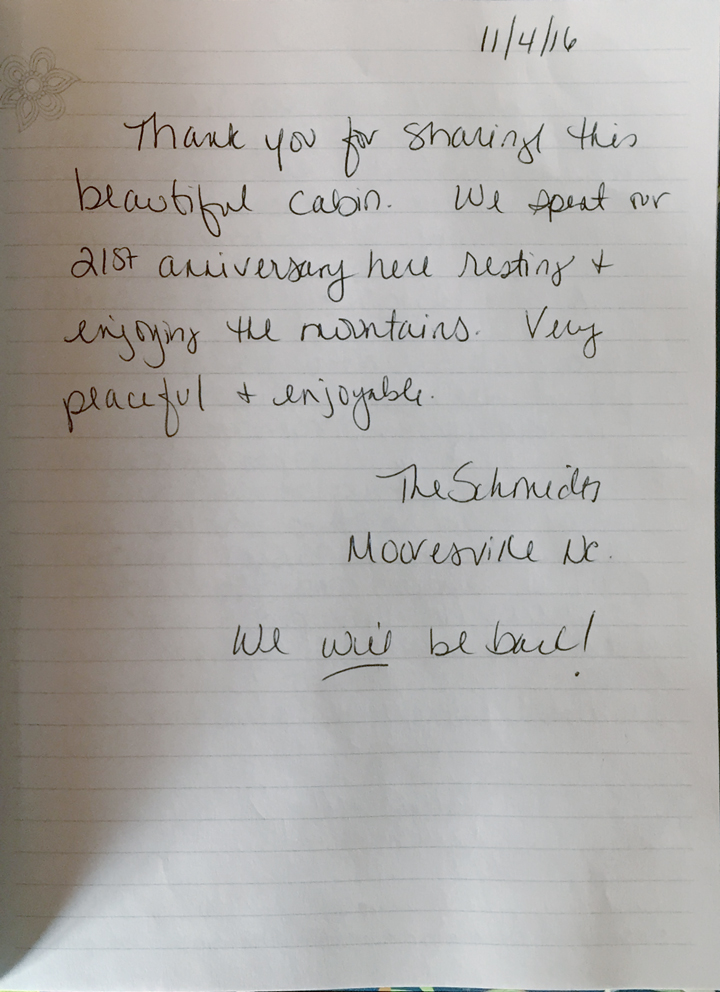 11/4/16
Thank you for sharing this
beautiful cabin. We spent our
21st anniversary here resting +
enjoying the mountains. Very
peaceful + enjoyable.
The Schmidts
Mooresville NC.
We will be back!